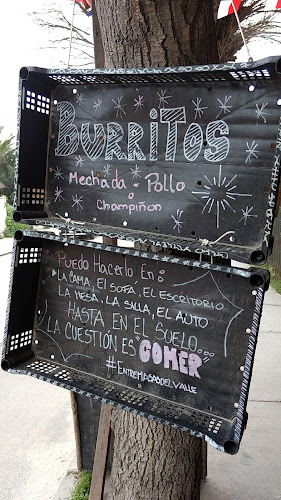 BURRITOS
Mechada - Pollo
Champiñon
Puedo Hacerlo En:
La cama, El sofa, El escritorio
La mesa, La silla, El auto
Hasta en el suelo...
La cuestión es "COMER"
#EntremasasDelValle